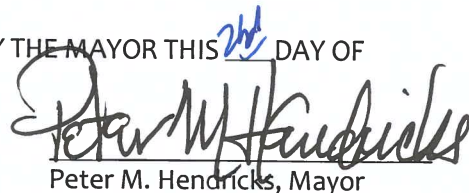 Y THE MAYOR THIS 2nd DAY OF
Peter M Hendricks
Peter M. Hendricks, Mayor